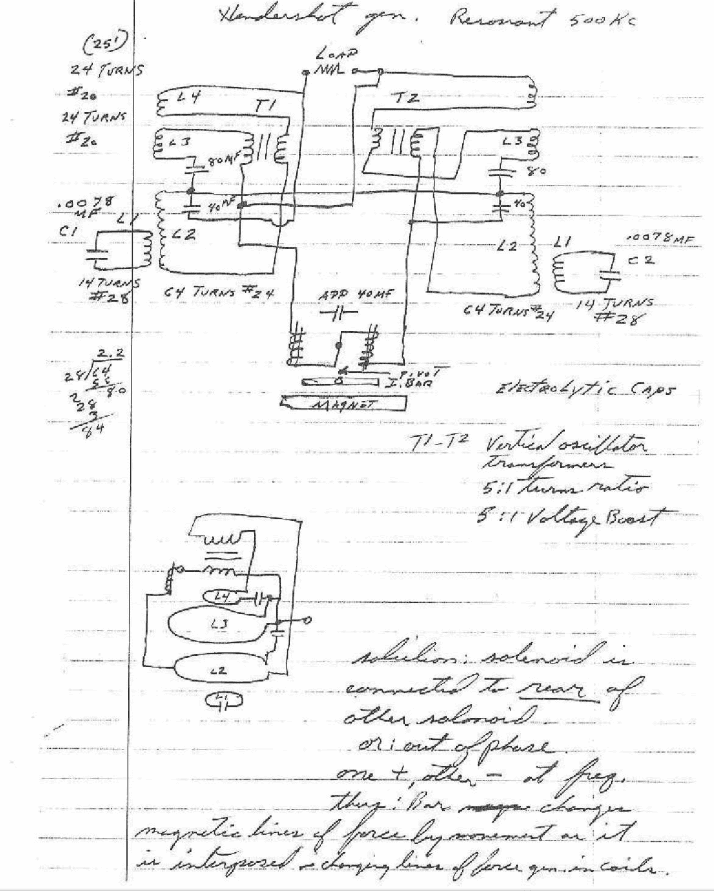 Hendershot gen. Resonant 500 Kc
(25')
24 TURNS
#20
24 TURNS
#20
LOAD
L4
T1
T2
L3
L3
80MF
80
.0078
MF
C1
L1
40MF
40
L2
L2
L1
.0078MF
C2
14 TURNS
#28
64 TURNS #24
ADD 40MF
64 TURNS #24
14 TURNS
#28
PIVOT
I. BAR
MAGNET
2.2
28/64
56
80
28
3
84
Electrolytic Caps
T1-T2 Vertical oscillator
transformers
5:1 turns ratio
5:1 Voltage Boost
L4
L3
L2
L1
solution: solenoid is
connected to rear of
other solonoid
or: out of phase.
one +, other - at freq.
thus: Bar changes
magnetic lines of force by movement as it
is interposed changing lines of force gen. in coils.